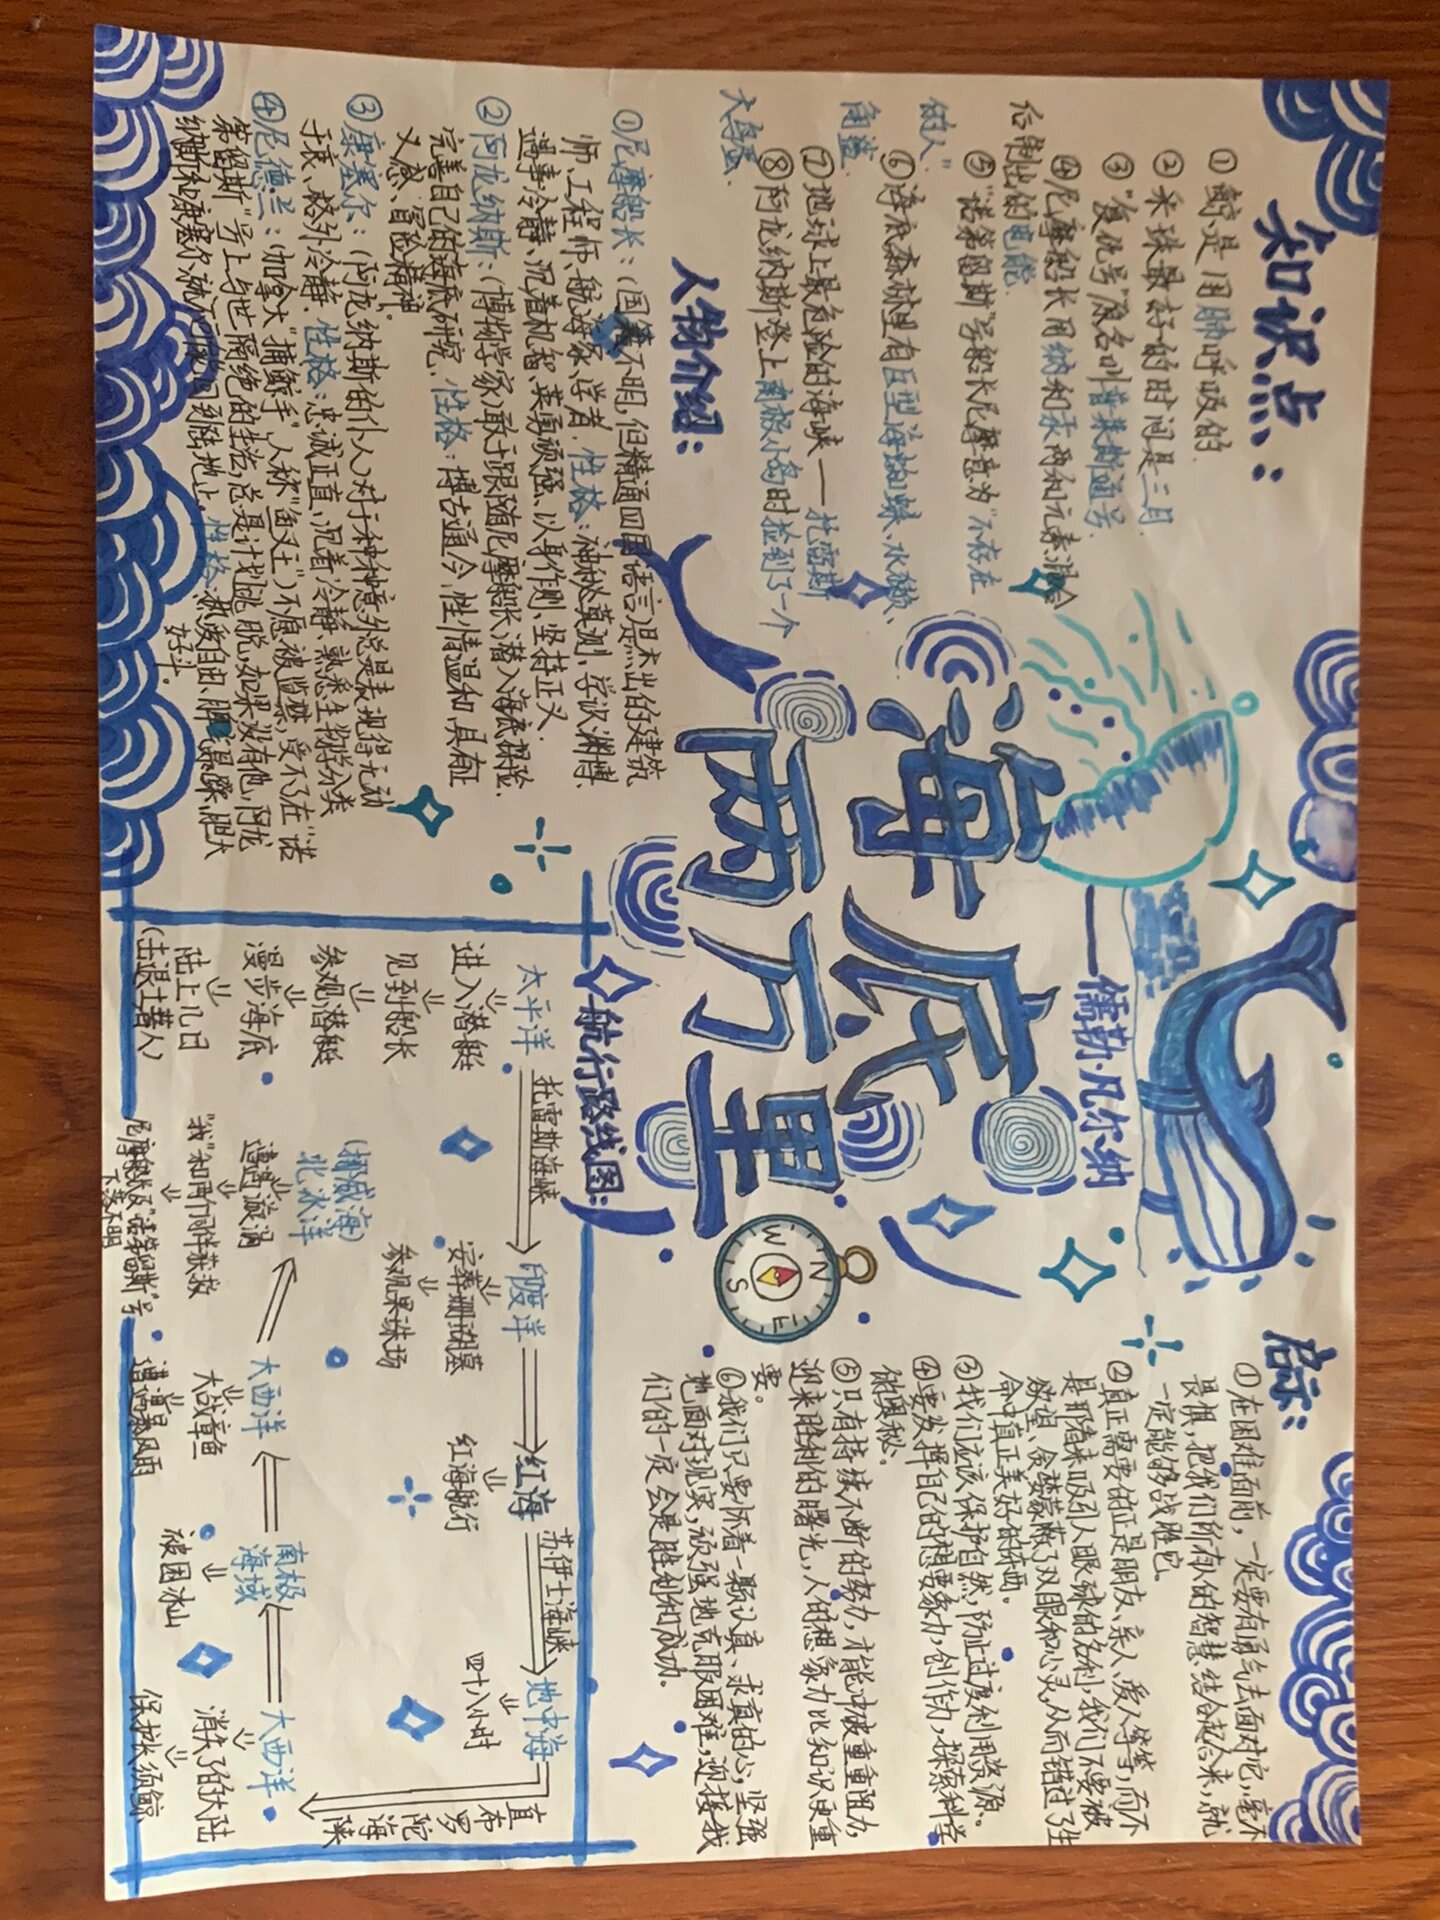 海底
两万里
——儒勒·凡尔纳
知识点：
① 鲸是用肺呼吸的.
② 采珠最好的时间是三月
③ "复仇号"原名叫"普莱斯通号
④ 尼摩船长用纳和汞两种元素混合
后制出的电能.
⑤ "诺第留斯"号船长尼摩意为"不存在
的人".
⑥ 海底森林里有巨型海蜘蛛、水獭、
角鲨.
⑦ 地球上最危险的海峡——托雷斯
⑧ 阿龙纳斯登上南极小岛时捡到了一个
大鸟蛋.
人物介绍：
①尼摩船长：(国籍不明，但精通四国语言)是杰出的建筑
师、工程师、航海家、学者.性格：神秘莫测、学识渊博、
遇事冷静、沉着机智、英勇顽强、以身作则、坚持正义.
②阿龙纳斯：(博物学家)敢于跟随尼摩船长,潜入海底探险.
完善自己的海底研究.性格：博古通今,性情温和,具有正
义感、冒险精神.
③康塞尔：(阿龙纳斯的仆人)对于种种意外总是表现得无动
于衷、格外冷静.性格:忠诚正直、沉着冷静、熟悉生物学分类
④尼德·兰：(加拿大"捕鲸手",人称"鱼叉王")不愿被监禁，受不了在"诺
第留斯"号上与世隔绝的生活,总是计划逃脱,如果没有他,阿龙
纳斯和康塞尔就不可能回到陆地上.性格:热爱自由、脾气暴躁、胆大
好斗.
启示：
①在困难面前，一定要有勇气去面对它，毫不
畏惧，把我们所有人的智慧结合起合来，就
一定能够战胜它.
②真正需要的正是朋友、亲人、爱人等等，而不
是那看来吸引人眼球的名利，我们不要被
欲望、贪婪蒙蔽了双眼和心灵,从而错过了生
命中真正美好的东西。
③我们应该保护自然，防止过度利用资源。
④要发挥自己的想要象力，创作力，探索科学
的奥秘。
⑤只有持续不断的努力，才能冲破重重阻力，
迎来胜利的曙光，人的想象力比知识更重
要。
⑥我们只要怀着一颗认真、求真的心，坚强
地面对现实，顽强地克服困难，迎接我
们的一定会是胜利和成功.
航行路线图：
太平洋
托雷斯海峡
印度洋
红海
苏伊士海峡
地中海
进入潜艇
见到船长
参观潜艇
漫步海底
陆上几日
(击退土著人)
安葬珊瑚墓
参观果珠场
红海航行
四十八小时
直布罗陀海陕
大西洋
消失了的大陆
保护长须鲸
南极
海域
被困冰山
大西洋
大战章鱼
遭遇暴风雨
(挪威海)
北冰洋
遭遇漩涡
"我"和两个同伴获救
尼摩船长及"诺第留斯"号
下落不明
N
E
S
W